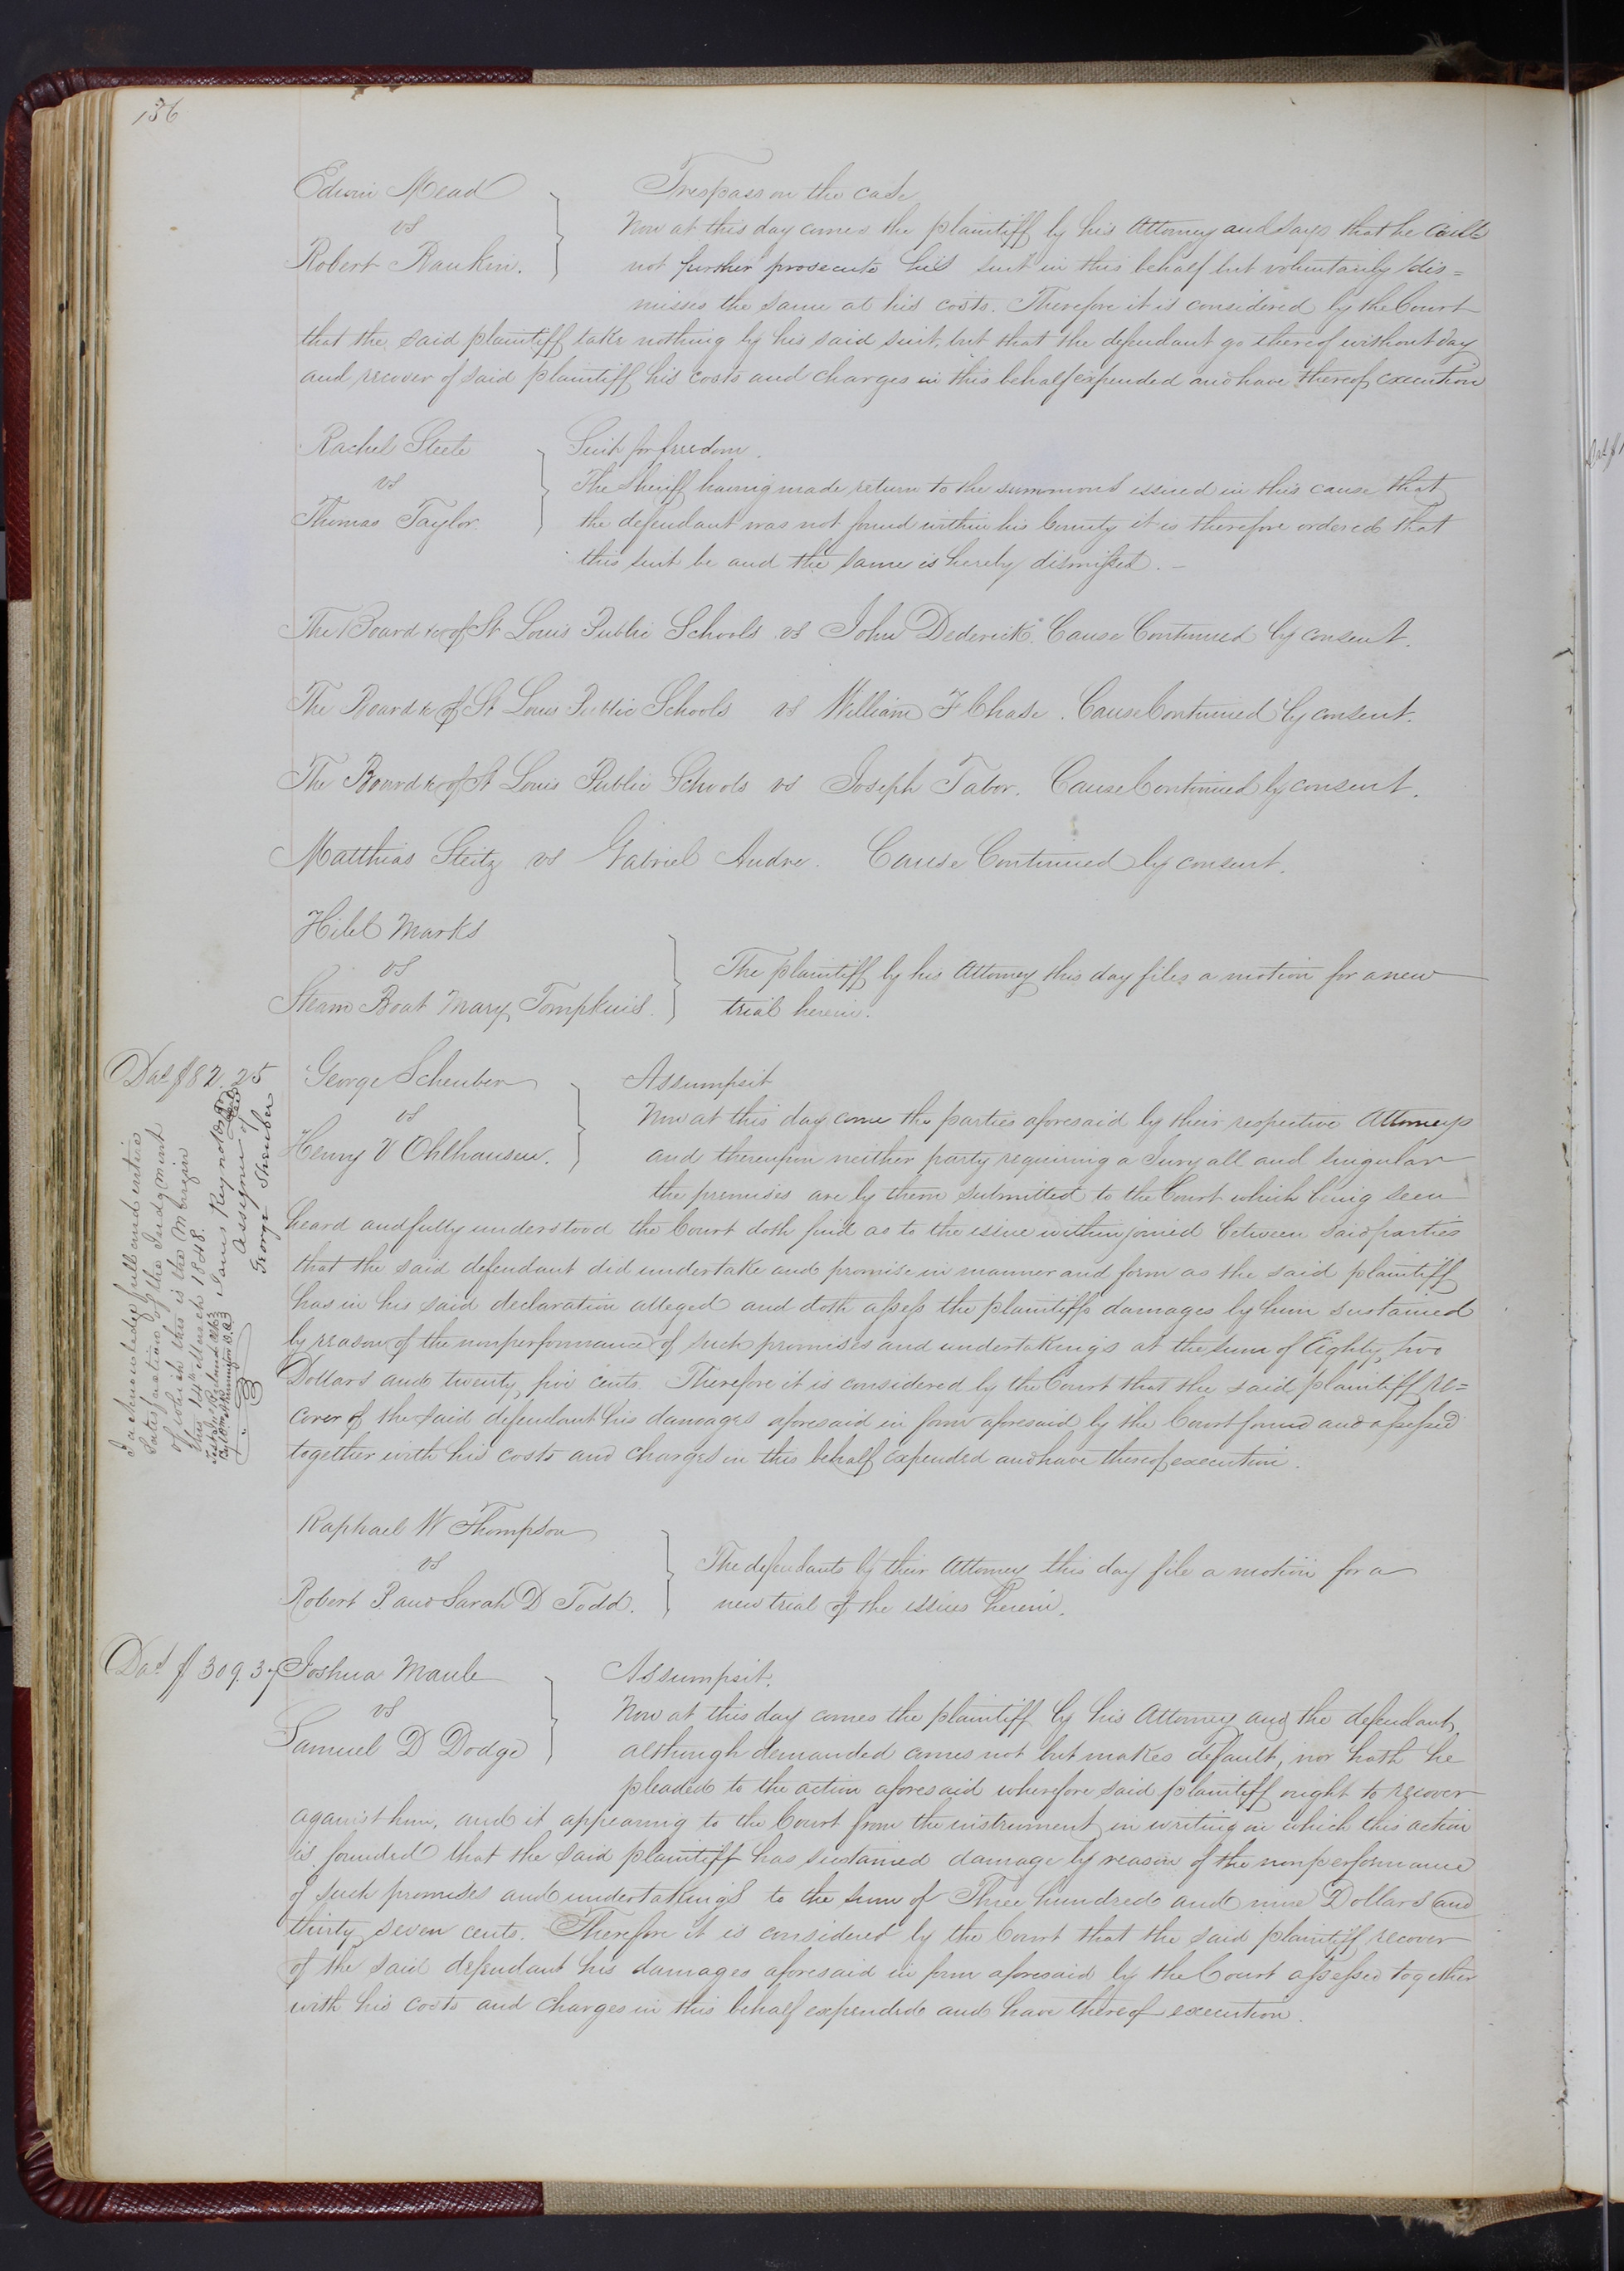 136
Edwin Mead
vs
Robert Rankin.
Trespass on the case
Now at this day comes the plaintiff by his Attorney and says that he will
not further prosecute his suit in this behalf but voluntarily dis=
misses the same at his costs. Therefore it is considered by the Court
that the said plaintiff take nothing by his said suit, but that the defendant go thereof without day
and recover of said plaintiff his costs and charges in this behalf expended and have thereof execution
Rachel Steele
vs
Thomas Taylor.
Suit for freedom.
The Sheriff having made return to the summons issued in this cause that
the defendant was not found within his County it is therefore ordered that
this suit be and the same is hereby dismissed. –
The Board &c of St Louis Public Schools vs John Dederick. Cause Continued by consent.
The Board &c of St Louis Public Schools vs William F Chase. Cause Continued by consent.
The Board &c of St Louis Public Schools vs Joseph Tabor. Cause Continued by consent.
Matthias Steitz vs Gabriel Andre. Cause Continued by consent.
Hilel Marks
vs
Steam Boat Mary Tompkins.
The plaintiff by his Attorney this day files a motion for a new
trial herein.
Das $82.25
George Scheuber
vs
Henry V Ohlhausen.
Assumpsit
Now at this day come the parties aforesaid by their respective Attorneys
and thereupon neither party requiring a Jury all and singular
the premises are by them submitted to the Court which being seen
heard and fully understood the Court doth find as to the issue within joined between said parties
that the said defendant did undertake and promise in manner and form as the said plaintiff
has in his said declaration alleged and doth assess the plaintiffs damages by him sustained
by reason of the nonperformance of such promises and undertakings at the sum of Eighty two
Dollars and twenty five cents. Therefore it is considered by the Court that the said plaintiff re=
cover of the said defendant his damages aforesaid in form aforesaid by the Court found and assessed
together with his costs and charges in this behalf expended and have thereof execution.
I acknowledge full and entire
satisfaction of the Judgment
of which this is the Margin
this 14th March 1848.
Assignee of
George Scheuber
Raphael W Thompson
vs
Robert P. and Sarah D Todd.
The defendants by their Attorney this day file a motion for a
new trial of the issues herein.
Das $309.37
Joshua Maule
vs
Samuel D Dodge
Assumpsit.
Now at this day comes the plaintiff by his Attorney and the defendant
although demanded comes not but makes default, nor hath he
pleaded to the action aforesaid wherefore said plaintiff ought to recover
against him, and it appearing to the Court from the instrument in writing on which this action
is founded that the said plaintiff has sustained damage by reason of the nonperformance
of such promises and undertakings to the sum of Three hundred and nine Dollars and
thirty seven cents. Therefore it is considered by the Court that the said plaintiff recover
of the said defendant his damages aforesaid in form aforesaid by the Court assessed together
with his costs and charges in this behalf expended and have thereof execution.